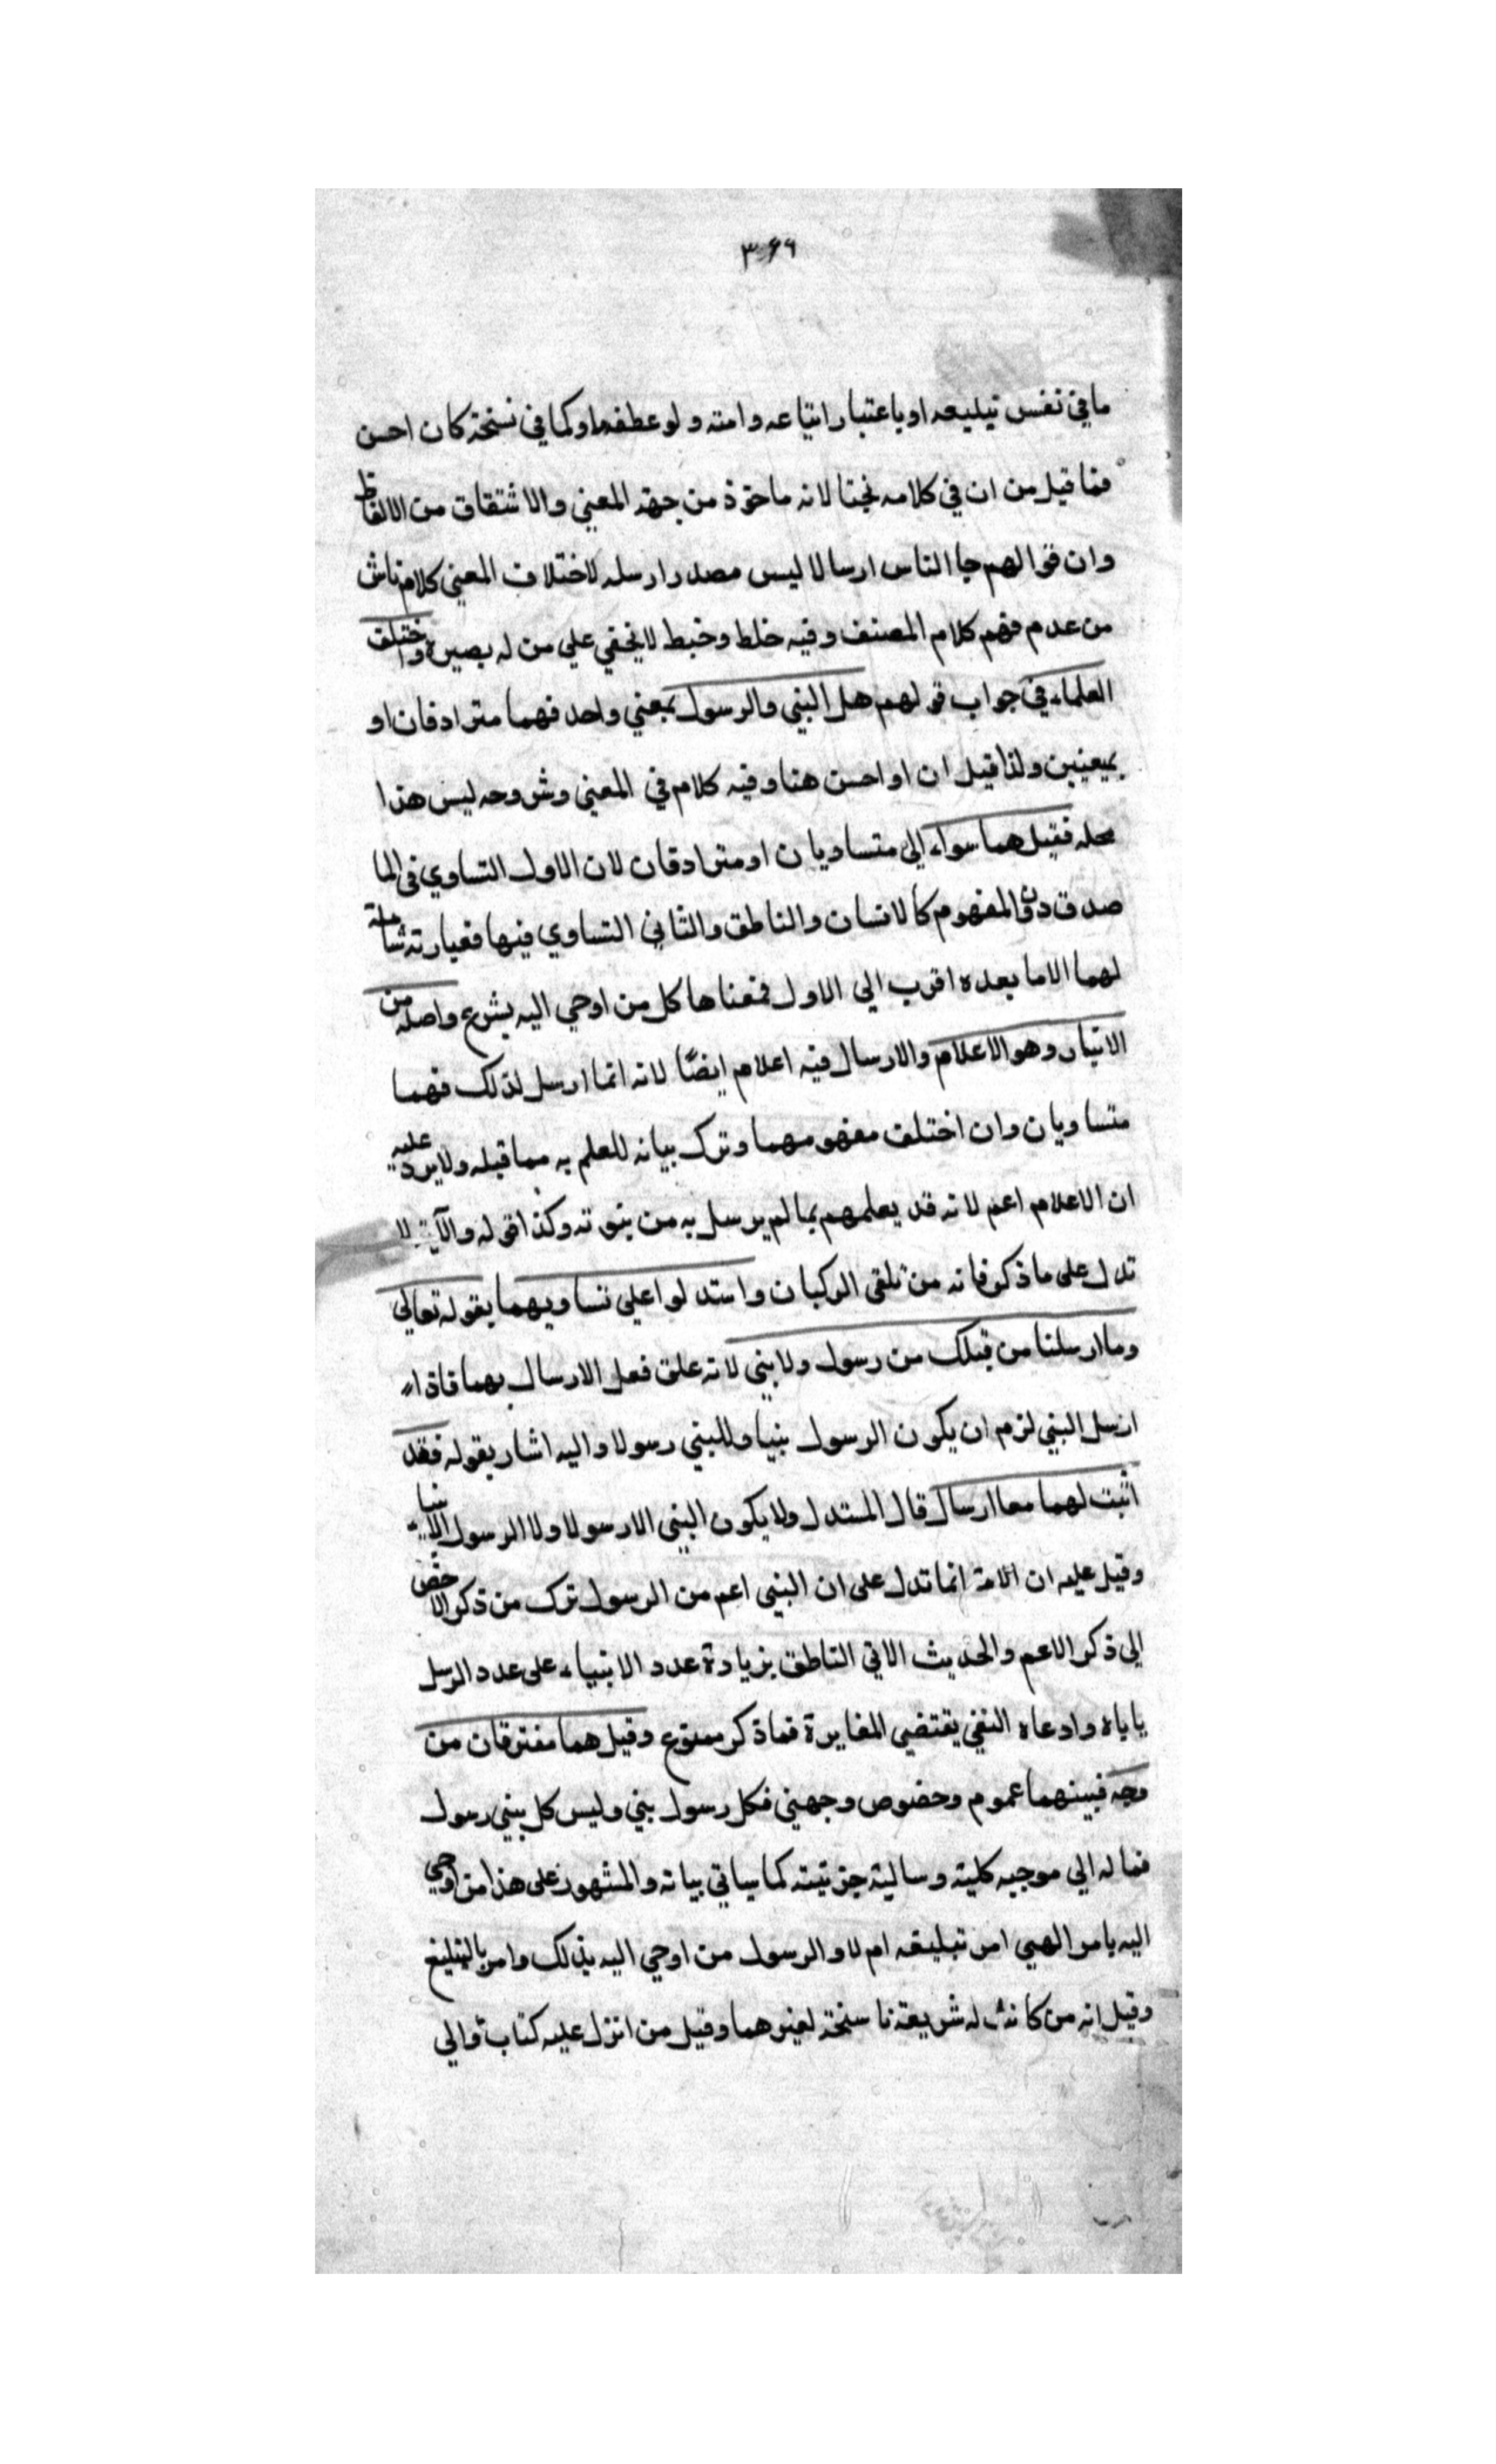 ٣٦٩
ما في نفس تبليعه او باعتبار اتباعه وامته ولو عطفه باو كما في نسخة كان احسن
فما قيل من ان في كلامه نجثا لانه ماخوذ من جهة المعني والاشتقاق من الالفاظ
وان قوالهم جا الناس ارسالا ليس مصدر ارسله لاختلاف المعني كلام ناش
من عدم فهم كلام المصنف وفيه خلط وخبط لا يخفي علي من له بصيرة واختلف
العلماء في جواب قولهم هل النبي والرسول بمعني واحد فهما مترادفان او
بمعينين ولذا قيل ان او احسن هنا وفيه كلام في المعني وشروحه ليس هذا
محله فقيل هما سواء الي متساويان او مترادقان لان الاول التساوي في الما
صدق دون المفهوم كالانسان والناطق والثاني التساوي فيها فعبارته شاملة
لهما الا ما بعده اقرب الي الاول فمعناها كل من اوحي اليه بشرع واصله من
الانباء وهو الاعلام والارسال فيه اعلام ايضا لانه انما ارسل لذلك فهما
متساويان وان اختلف مفهومهما وترك بيانه للعلم به مما قبله ولا يرد عليه
ان الاعلام اعم لانه قد يعلمهم بما لم يرسل به من بنوته وكذا قوله والآية لا
تدل على ما ذكر فانه من تلقى الركبان واستدلوا علي تساويهما بقوله تعالي
وما ارسلنا من قبلك من رسول ولا نبي لانه علق فعل الارسال بهما فاذا
ارسل النبي لزم ان يكون الرسول نبيا وللنبي رسولا واليه اشار بقوله فقد
اثبت لهما معا ارسال قال المستدل ولا يكون النبي الا رسولا ولا الرسول الا نبيا
وقيل عليه ان الآية انما تدل على ان النبي اعم من الرسول ترك من ذكر الاخص
الي ذكر الاعم والحديث الاتي الناطق بزيادة عدد الانبياء على عدد الرسل
ياباه وادعاه النفي يقتضي المغايرة فما ذكر ممنوع وقيل هما مفترقان من
وجه فبينهما عموم وخصوص وجهيني فكل رسول نبي وليس كل نبي رسول
فما له الي موجبه كلية وسالبة جزئيته كما سياتي بيانه والمشهور على هذا من اوحي
اليه بامر الهيي امر تبليغه ام لا والرسول من اوحي اليه بذلك وامر بالتبليغ
وقيل انه من كانت له شريعة ناسخة لغيرهما وقيل من انزل عليه كتاب والي